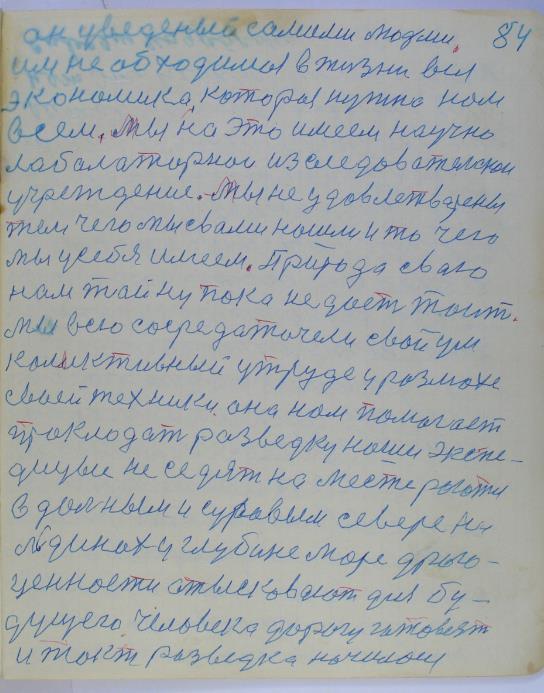 он уведеный самими людми. 84
им необходимоя в жизни вся
экономика, которая нужна нам
всем. Мы на это имеем научно
лабалаторнои изследователскои
учреждение. Мы не удовлетварены
тем чего мы свами нашли и то чего
мы усебя имеем. Природа сваю
нам тайну пока не дает таит.
мы всю сосредаточели свой ум
колективный утруде и размохе
своей техники. она нам помогает
прокладат разведку наши экспе-
диции не седят на месте
в далным и суровым севере на
льдинах и глубине море драго-
ценности атысковают для бу-
дущего человека дорогу гатовят
и так разведка